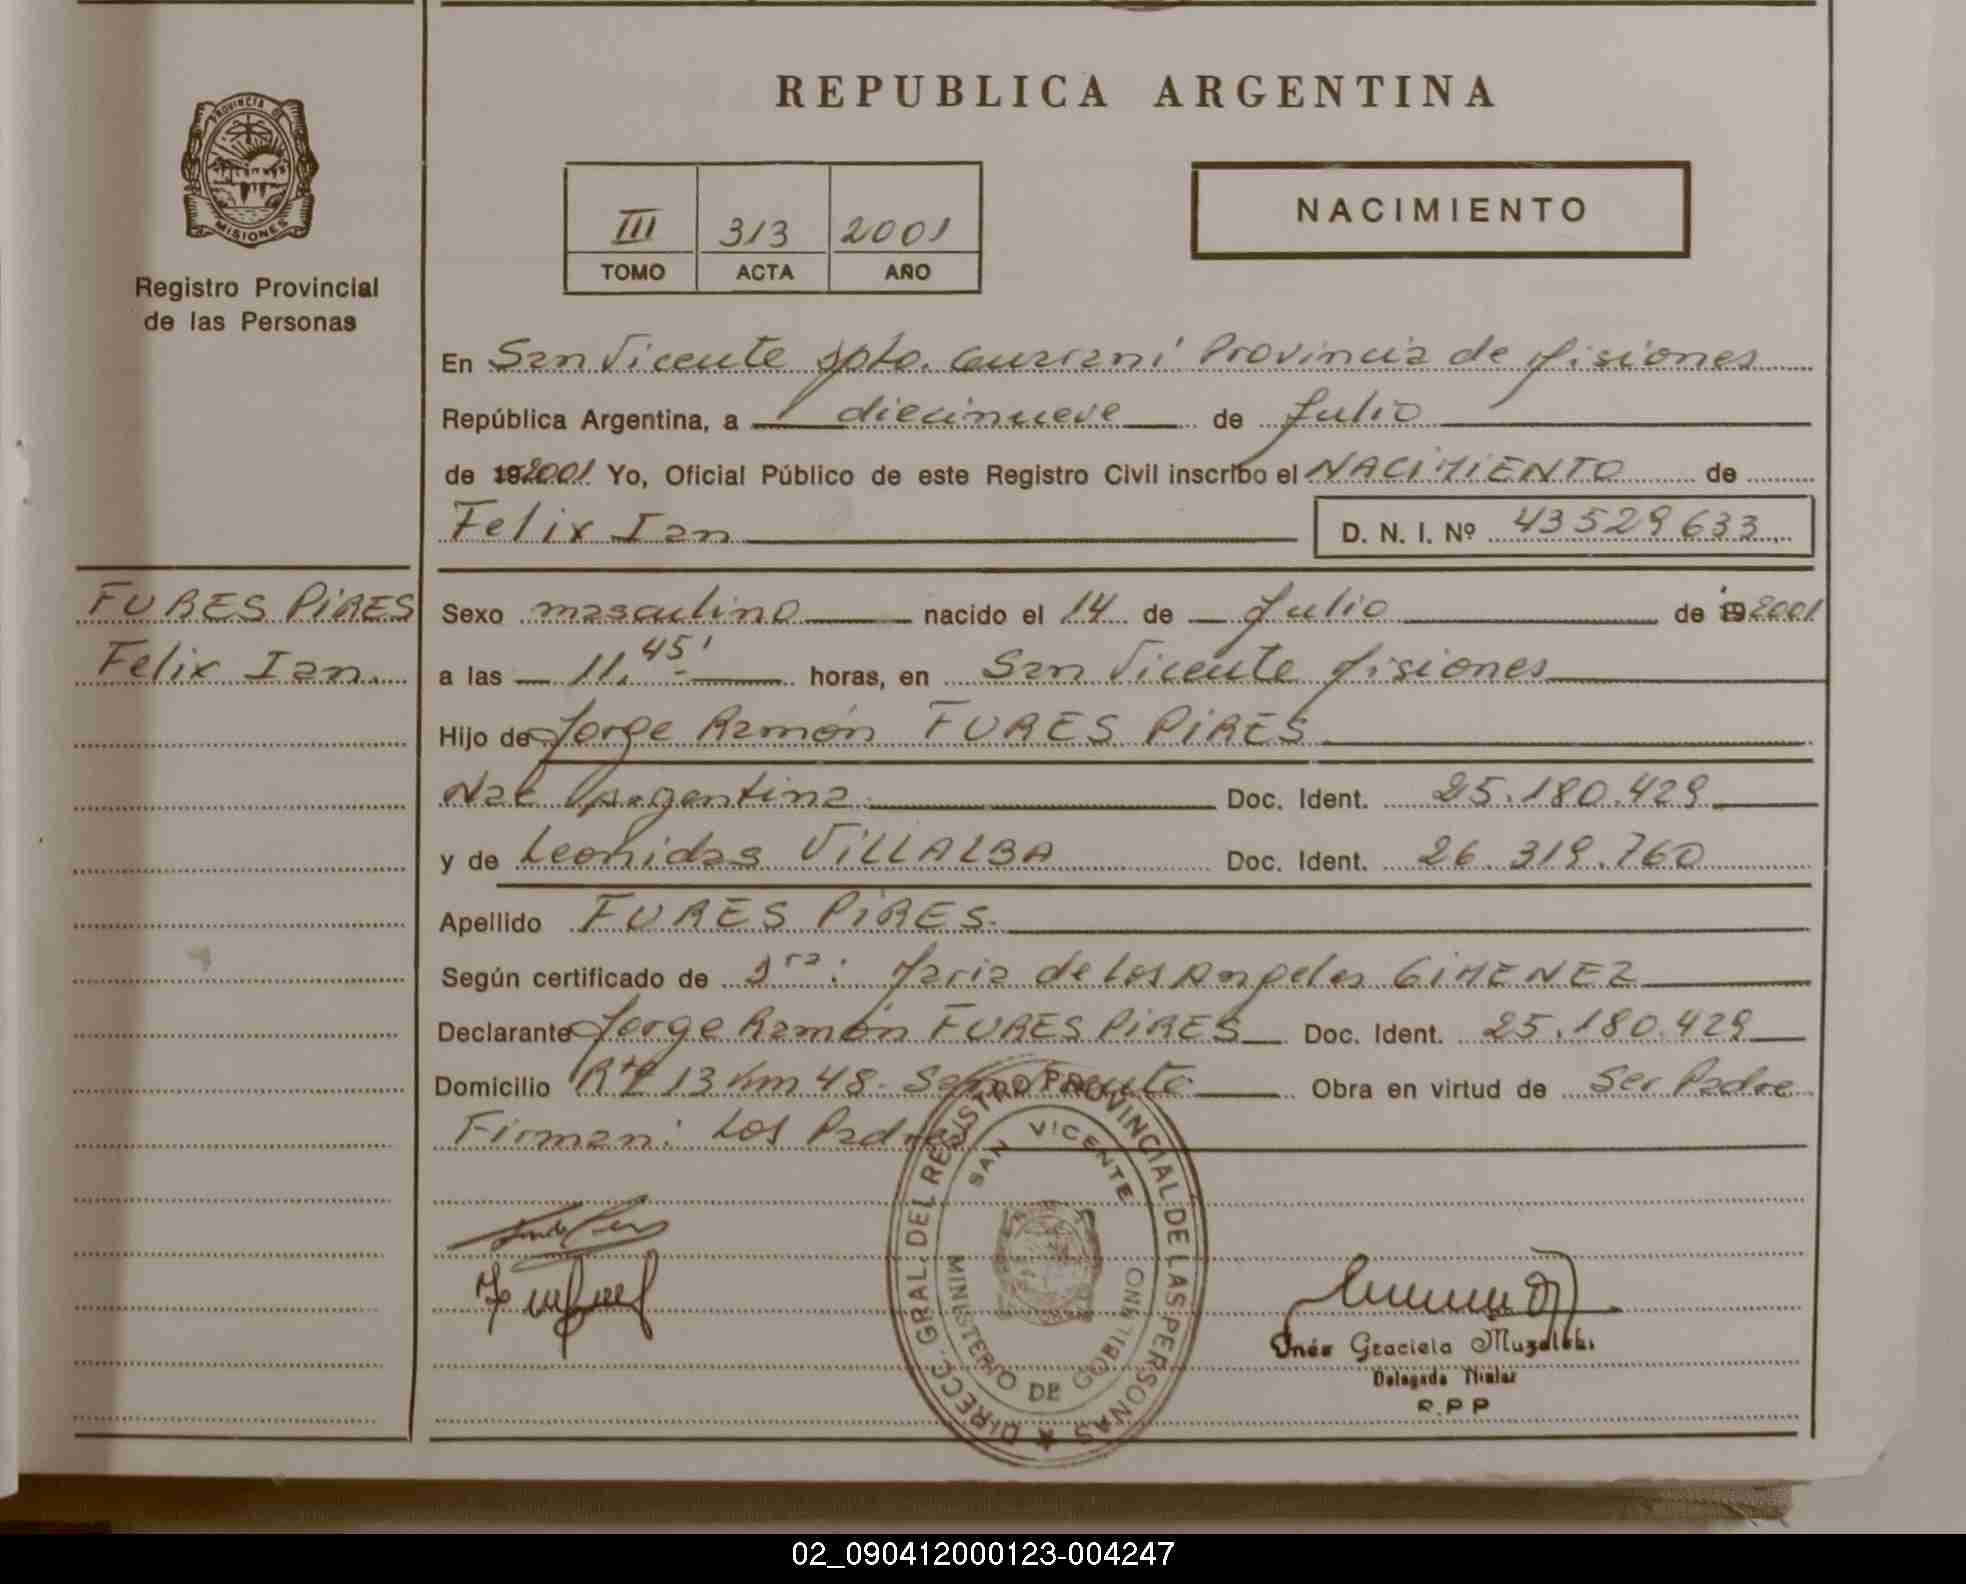 PROVINCIA D
MISIONES
Registro Provincial
de las Personas
FURES PIRES
Felix Ian
REPUBLICA ARGENTINA
III 313 2001
TOMO ACTA AÑO
NACIMIENTO
En San Vicente Dpto. Guarani Provincia de Misiones
República Argentina, a diecinueve de Julio
de 192001 Yo, Oficial Público de este Registro Civil inscribo el NACIMIENTO de
Felix Ian D. N. I. Nº 43529633
Sexo masculino nacido el 14 de Julio de 192001
a las 11,45' horas, en San Vicente Misiones
Hijo de Jorge Ramón FURES PIRES
Nac Argentina Doc. Ident. 25.180.429
y de Leonidas VILLALBA Doc. Ident. 26.319.760
Apellido FURES PIRES.
Según certificado de Dra: Maria de Los Angeles GIMENEZ
Declarante Jorge Ramón FURES PIRES Doc. Ident. 25.180.429
Domicilio Rta 13 Km 48. San Vicente Obra en virtud de Ser Padre
Firman: Los Padres
DIRECC. GRAL. DEL REGISTRO PROVINCIAL DE LAS PERSONAS
SAN VICENTE
MINISTERIO DE GOBIERNO
Inés Graciela
Delegada Titular
R.P.P
02_090412000123-004247